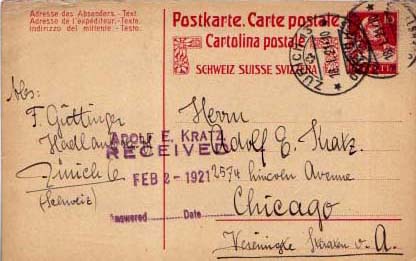 Adresse des Absenders.-Text
Adresse de l'expéditeur.-Texte
Indirizzo del mittente.-Testo
Postkarte. Carte postale
Cartolina postale
SCHWEIZ SUISSE SVIZZERA
10
Abs:
F. Güttinger
Zürich 6
(Schweiz)
ADOLF E. KRATZ
RECEIVED
FEB 2 - 1921
Answered Date
Herrn
Adolf E. Kratz.
2574 Lincoln Avenue
Chicago
Vereinigte Staaten v. A.